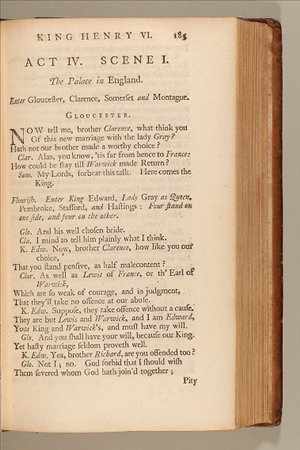 KING HENRY VI. 185
ACT IV. SCENE I.
The Palace in England.
Enter Gloucester, Clarence, Somerset and Montague.
GLOUCESTER.
NOW tell me, brother Clarence, what think you
Of this new marriage with the lady Gray?
Hath not our brother made a worthy choice?
Clar. Alas, you know, 'tis far from hence to France:
How could he stay till Warwick made Return?
Som. My Lords, forbear this talk. Here comes the
King.
Flourish. Enter King Edward, Lady Gray as Queen,
Pembroke, Stafford, and Hastings: Four stand on
one side, and four on the other.
Glo. And his well chosen bride.
Cla. I mind to tell him plainly what I think.
K. Edw. Now, brother Clarence, how like you our
choice,
That you stand pensive, as half malecontent?
Clar. As well as Lewis of France, or th' Earl of
Warwick,
Which are so weak of courage, and in judgment,
That they'll take no offence at our abuse.
K. Edw. Suppose, they take offence without a cause.
They are but Lewis and Warwick, and I am Edward,
Your King and Warwick's, and must have my will.
Glo. And you shall have your will, because our King.
Yet hasty marriage seldom proveth well.
K. Edw. Yea, brother Richard, are you offended too?
Glo. Not I; no. God forbid that I should wish
Them severed whom God hath join'd together;
Pity